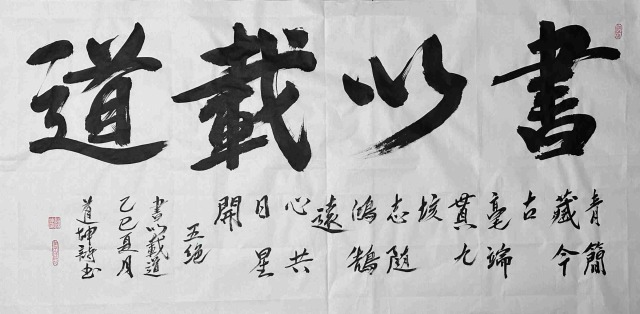 書以載道
青簡
藏今
古
毫端
貫九
垓
志隨
鴻鵠
遠
心共
日星
開
五絕
書以載道
乙巳夏月
道坤詩書